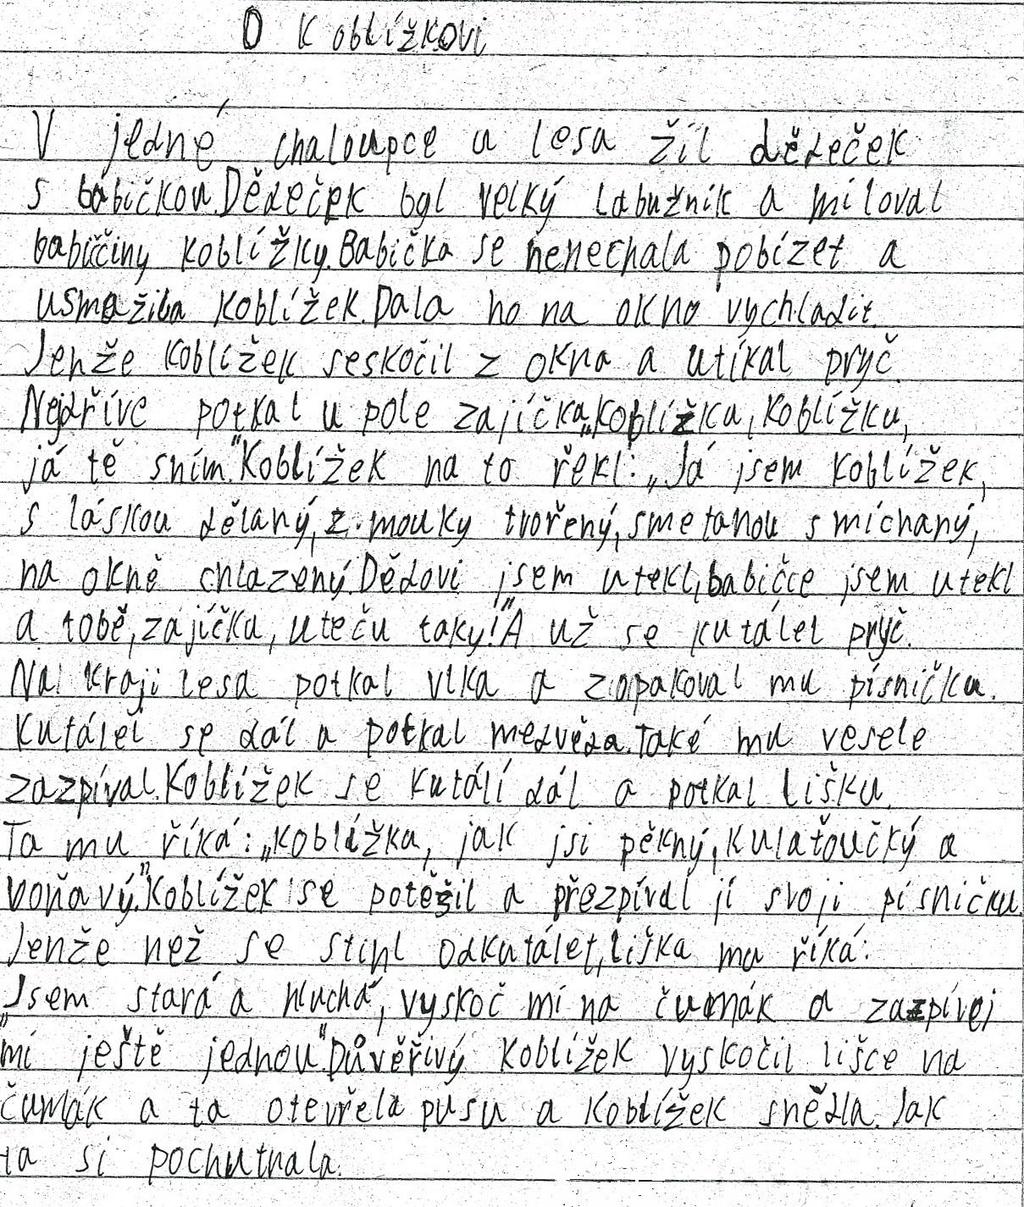 O Koblížkovi
V jedné chaloupce u lesa žil dědeček
s babičkou. Dědeček byl velký labužník a miloval
babiččiny koblížky. Babička se nenechala pobízet a
usmažila koblížek. Dala ho na okno vychladit.
Jenže koblížek seskočil z okna a utíkal pryč.
Nejdříve potkal u pole zajíčka. „Koblížku, koblížku,
já tě sním." Koblížek na to řekl: „Já jsem koblížek,
s láskou dělaný, z mouky tvořený, smetanou smíchaný,
na okně chlazený. Dědovi jsem utekl, babičce jsem utekl
a tobě, zajíčku, uteču taky!" A už se kutálel pryč.
Na kraji lesa potkal vlka a zopakoval mu písničku.
Kutálel se dál a potkal medvěda. Také mu vesele
zazpíval. Koblížek se kutálí dál a potkal lišku.
Ta mu říká: „Koblížku, jak jsi pěkný, kulaťoučký a
voňavý." Koblížek se potěšil a přezpíval jí svoji písničku.
Jenže než se stihl odkutálet, liška mu říká:
„Jsem stará a hluchá, vyskoč mi na čumák a zazpívej
mi ještě jednou." Důvěřivý koblížek vyskočil lišce na
čumák a ta otevřela pusu a koblížek snědla. Jak
ta si pochutnala.